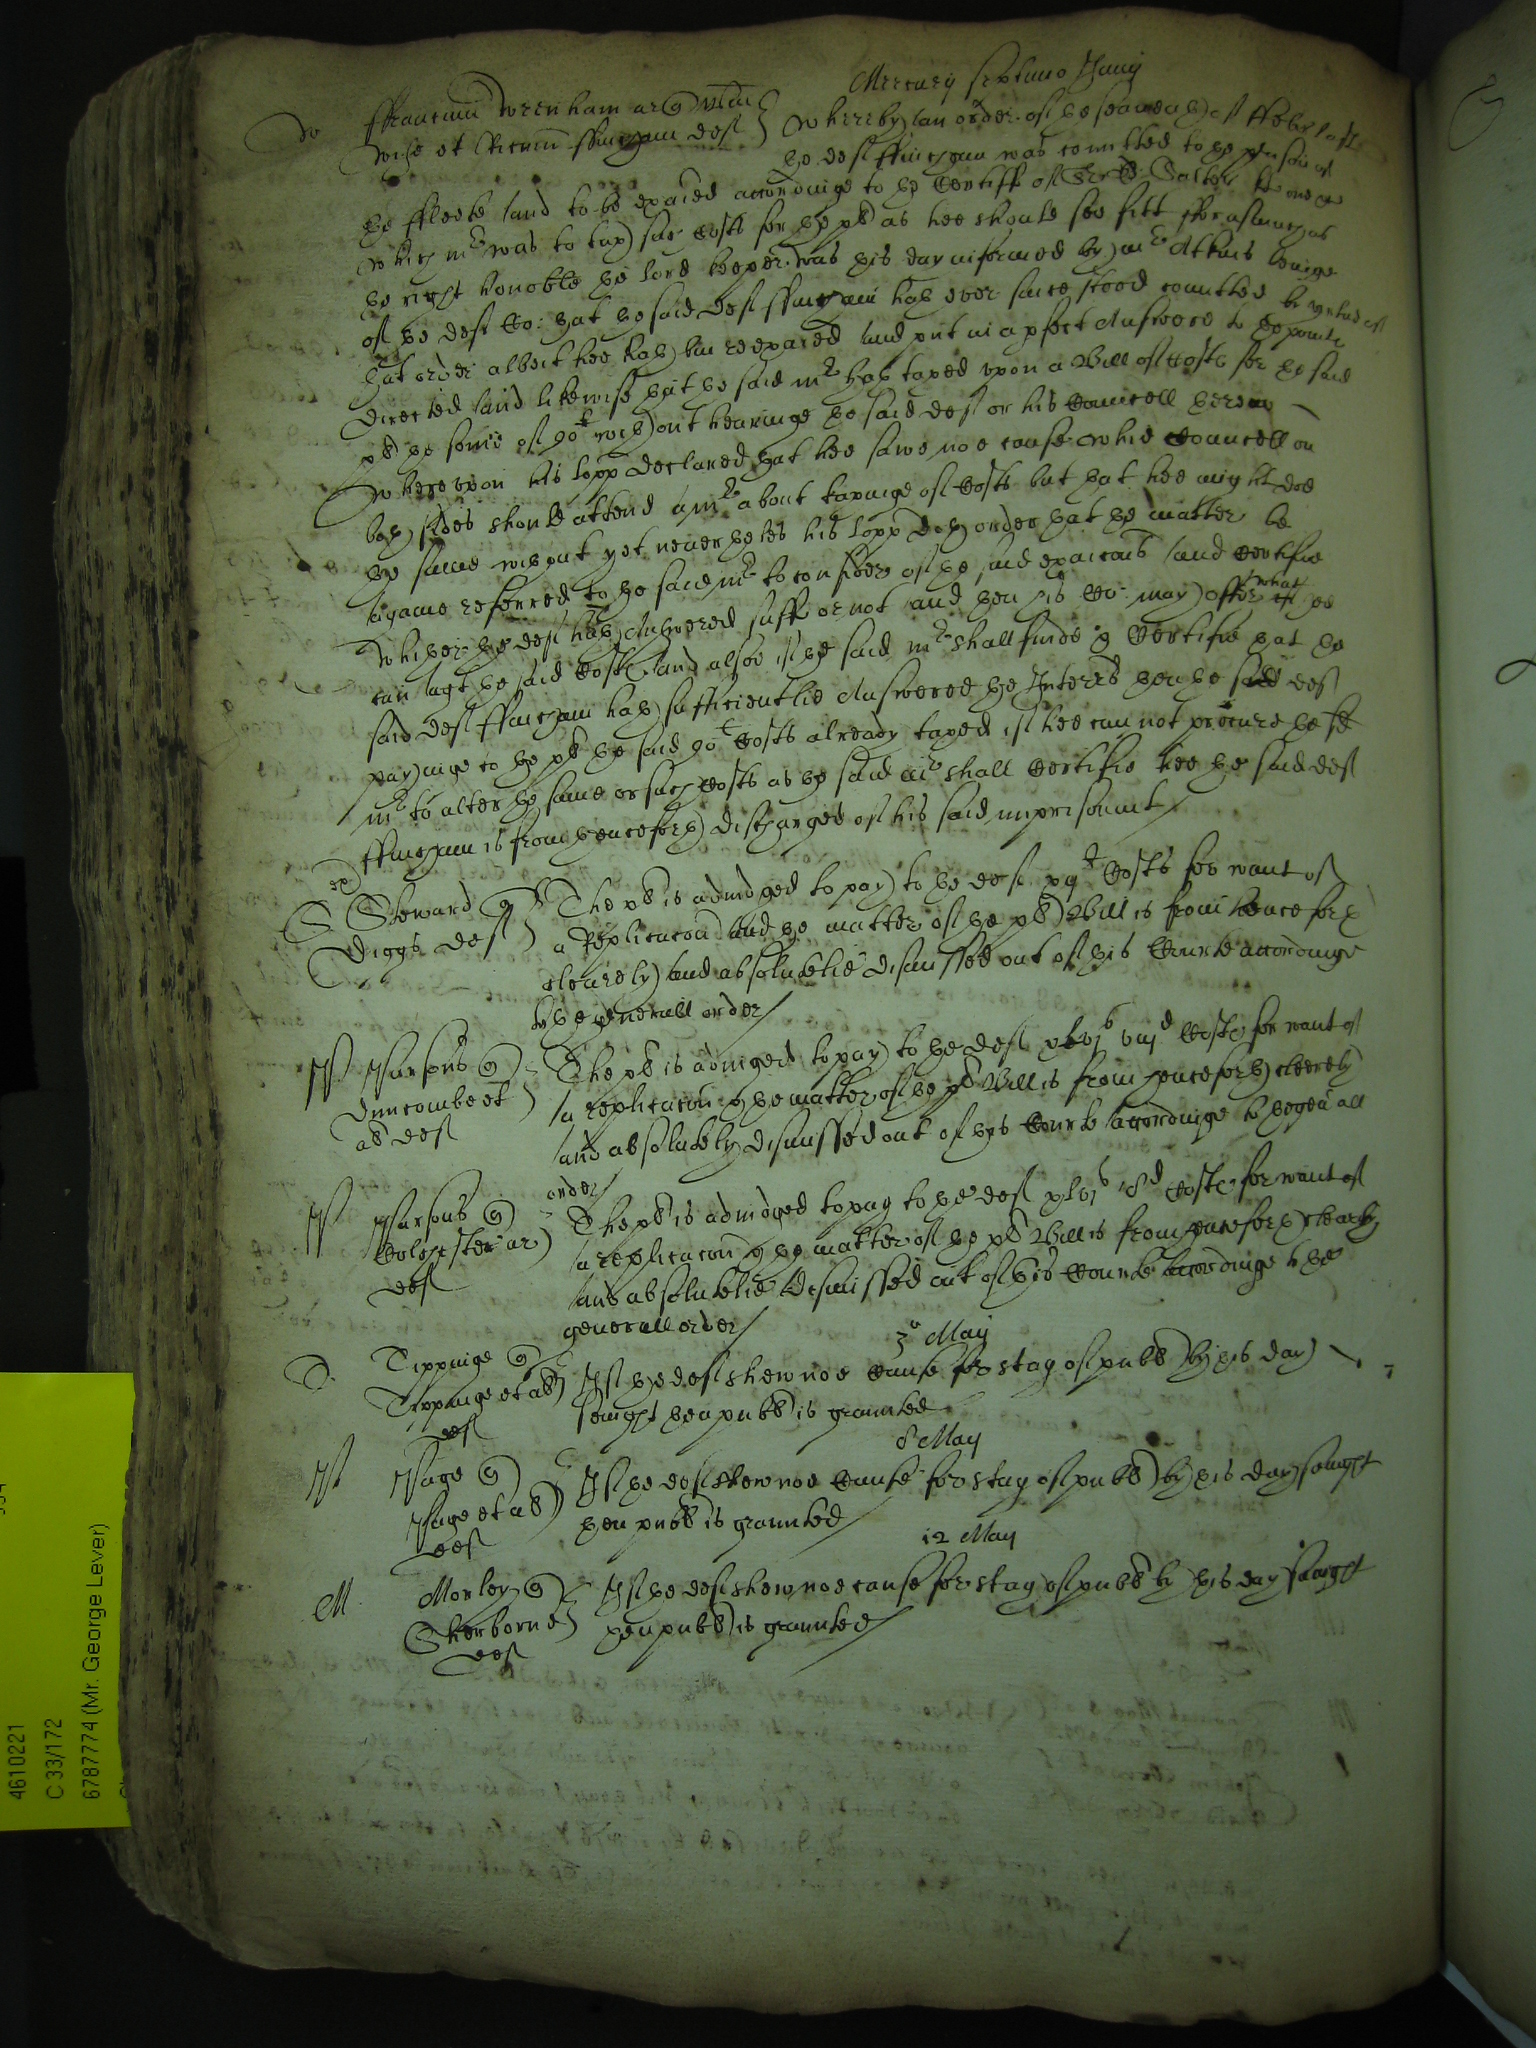 Mercurij septimo Junij
W ffranciscum Wrenham ar q
Whereby an order of the seaventh of ffebr last
Wise et Ricum ffincham def
the def ffincham was comitted to the prison of
the fleete and to be exaied accordinge to the Certiff of
which mr was to tax such Costs for the pl as hee should see fitt fforasmuch as
the right honoble the lord keeper was this day informed by mr Atkins beinge
of the defts Co: that the said def ffincham hath ever since stood comitted by vertue of
that order albeit hee hath bin reexaied and put in a pfect Answere to the points
directed and likewise that the said mr hath taxed upon a Bill of Costs for the said
pl the some of without hearinge the said def or his Councell therein
Whereupon his lopp declared that hee sawe noe cause whie Councell on
both sides should attend a mr about taxinge of Costs but that hee might doe
the same without yet neverthelesse his lopp doth order that the matter be
againe referred to the said mr to consider of the said exaicons and Certifie
whither the def hath Answered suff or not and then his Co: may offer what
can agt the said Costs and alsoe if the said mr shall finde & Certifie that the
said def ffincham hath sufficientlie Answered the Interrs then the said def
payinge to the pl the said Costs already taxed if hee can not procure the sd
mr to alter the same or such Costs as the said mr shall Certifie hee the said def
ffincham is from henceforth discharged of his said imprisonmt
S Steward q
Diggs def
The pl is adiudged to pay to the def Costs for want of
a Replicacon and the matter of the pl Bill is from henceforth
clearely and absolutelie dismissed out of this Courte accordinge
to the generall order
P Parsons q
Duncombe et
al def
The pl is adiudged to pay to the def xlvjs viijd Costs for want of
a replicacon & the matter of the pl Bill is from henceforth cleerely
and absolutely dismissed out of this Courte accordinge to the genall
order
P Parsons q
Colchester ar
def
The pl is adiudged to pay to the def xlvjs 8d Costs for want of
a replicacon & the matter of the pl Bill is from henceforth clearly
and absolutelie dismissed out of this Courte accordinge to the
generall order
3o May
T Tippinge q
Tippinge et al
def
If the def shew noe Cause for stay of publ by this day
senight then publ is graunted
8 May
P Page q
Page et al
def
If the def shew noe Cause for stay of publ by this day senight
then publ is graunted
12 May
M Morley q
Sherborne
def
If the def shew noe cause for stay of publ by this day senight
then publ is graunted
4610221
C 33/172
6787774 (Mr. George Lever)